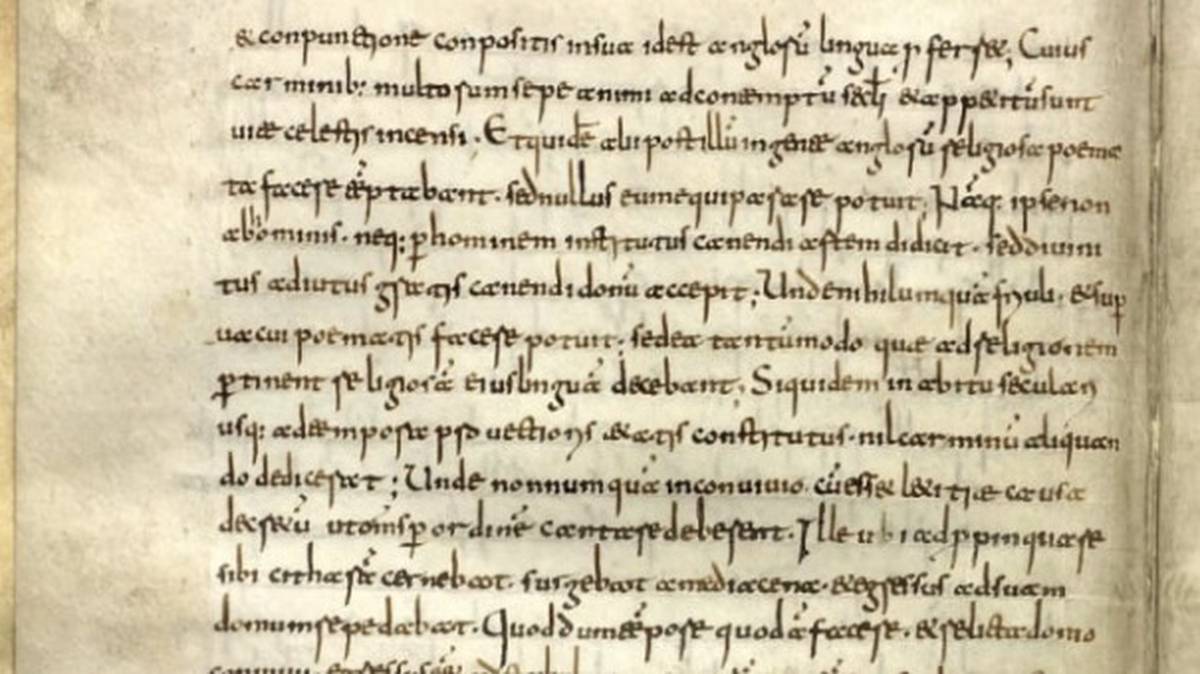 & conpunctione conpositis insua idest anglosū lingua pferret; Cuius
carminib: multorum sepe animi adcontemptū secli &apperitū sunt
uitae celestis incensi. Et quidē alii post illū ingente anglorū religiosa poema
ta facere tēptabant. sed nullus eum equiparare potuit; Nāq: ipse non
ab hominis. neq: p hominem institutus canendi artem didicit. sed diuini
tus adiutus gratis canendi donū accepit; Unde nihil umquā friuli. & sup
uacui poematis facere potuit; sed ea tantūmodo quae ad religionem
ptinent religiosā eius linguā decebant; Siquidem in abitu seculari
usq: ad tempora psouectioris &atis constitutus. nil carminū aliquan
do dedicerat; Unde nonnumquā inconuiuio. cū ess& l&itiae causa
decr&ū ut omīs p ordinē cantare deberent. Ille ubi adppinquare
sibi citharā cernebat. surgebat amedia cena. & egressus ad suam
domum repedabat. Quod dum tēpore quodā faceret. & relicta domo